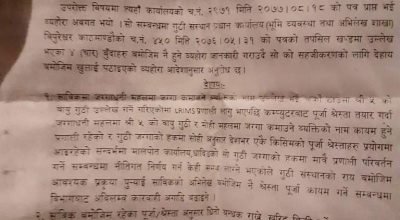 उपरोक्त विषयमा त्यहाँ कार्यालयको च.नं. २९७१ मिति २०७७।०८।१८ को पत्र प्राप्त भई
व्यहोरा अवगत भयो । सो सम्बन्धमा गुठी संस्थान प्रधान कार्यालय (भूमि व्यवस्था तथा अभिलेख शाखा)
डिपुरेश्वर काठमाण्डौको च.नं. ४५० मिति २०७६।०५।३१ को पत्रको तपसिल खण्डमा उल्लेख
भएका ४ (चार) बुँदाहरु बमोजिम नै हुने व्यहोरा जानकारी गराउदै सो को सहजीकरणको लागि देहाय
बमोजिम खुलाई पठाइएको व्यहोरा आदेशानुसार अनुरोध छ।
देहायः-
१. साविकमा जग्गाधनी महलमा जग्गा कमाउने उल्लेख श्री ५ को
वा गुठी उल्लेख गर्ने गरिएकोमा LRIMS प्रणाली लागु भएपछि कम्प्युटरबाट पूर्जा तयार गर्दा
जग्गाधनी महलमा श्री ५ को वा गुठी र मोही महलमा जग्गा कमाउने व्यक्तिको नाम कायम हुने
प्रणाली रहेको र गुठी जग्गाको हकमा सोही अनुसार देशभर एकै किसिमको पूर्जा श्रेस्ताहरु प्रयोगमा
आइरहेको सन्दर्भमा मालपोत कार्यालय, धादिङको मो गुठी जग्गाको हकमा मात्रै प्रणाली परिवर्तन
गर्ने सम्बन्धमा नीतिगत निर्णय गर्न केही समय लाग्ने भएकोले गुठी संस्थानको राय बमोजिम
आवश्यक प्रक्रया पुर्‍याई साविकको अभिलेख बमोजिम नै श्रेस्ता पूर्जा कायम गर्ने सम्बन्धमा
विभागबाट अविलम्ब कारवाही अगाडि बढाइने।
२. साविक बमोजिम रहेका पूर्जा/श्रेस्ता अनुसार धितो बन्धक राख्ने,